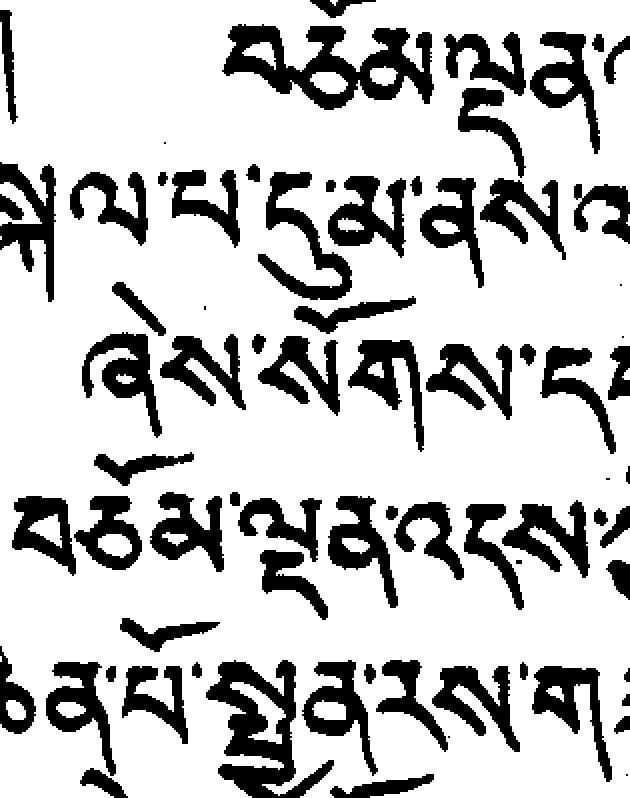 བཅོམ་ལྡན་
ལ་པ་དུ་མ་ནས་
ཞེས་སོགས་
བཅོམ་ལྡན་འདས་
པོ་སྤྱན་རས་ག